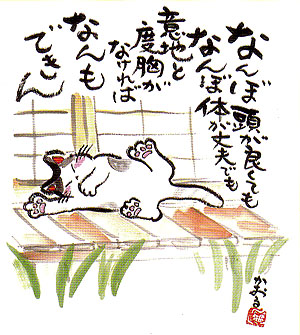 なんぼ頭が良くても
なんぼ体が丈夫でも
意地と
度胸が
なければ
なんも
できん